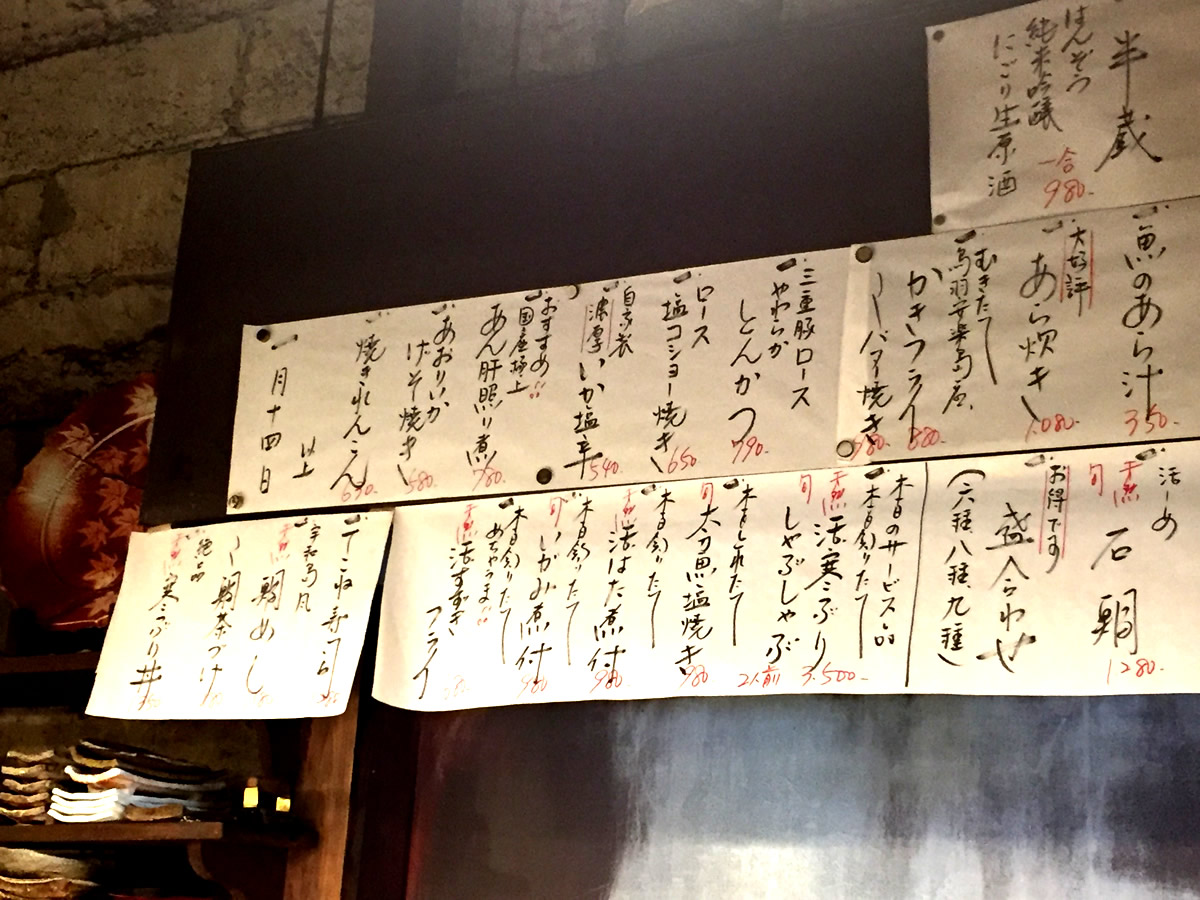 半蔵
はんぞう
純米吟醸
一合
980-
にごり生原酒
魚のあら汁
350-
大好評
あら炊き
1,080-
むきたて
鳥羽安楽島産
かきフライ
880-
〃バター焼き
980-
三重豚ロース
やわらか
とんかつ
790-
ロース
塩コショー焼き
650
自家製
濃厚
いか塩辛
540-
おすすめ!!
国産極上
あん肝照り煮
780-
あおりいか
げそ焼き
580-
焼きれんこん
690-
以上
一月十四日
活〆め
天然
旬
石鯛
1280-
お得です
盛合わせ
(六種、八種、九種)
本日のサービス品
本日釣りたて
天然
活寒ぶり
3,500-
旬
しゃぶしゃぶ
2人前
本日とれたて
旬
太刀魚塩焼き
980
本日釣りたて
天然
活はた煮付
980
本日釣りたて
旬
いがみ煮付
980
本日釣りたて
めちゃうま!!
天然
活すずき
フライ
てこね寿し
宇和島風
天然
鯛めし
〃鯛茶づけ
絶品
天然
寒ぶり丼